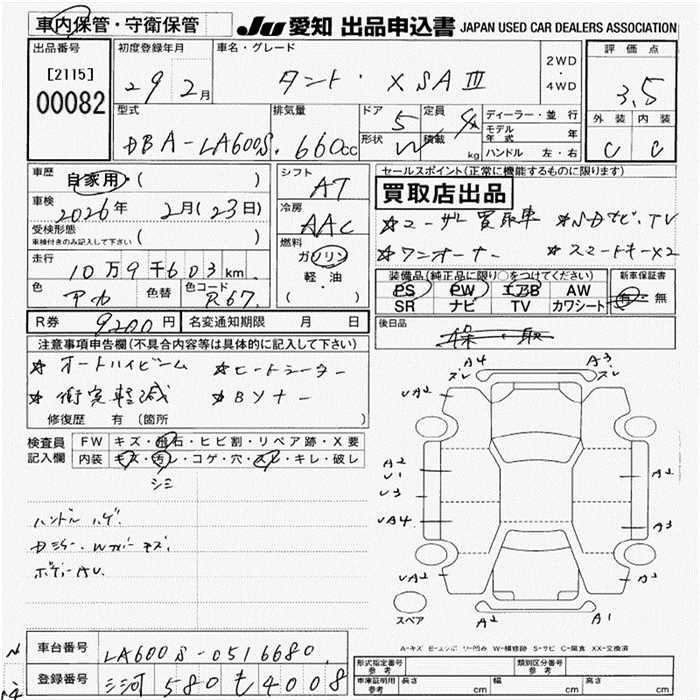 車内保管・守衛保管
JU 愛知 出品申込書 JAPAN USED CAR DEALERS ASSOCIATION
出品番号
[2115]
00082
初度登録年月
29年2月
車名・グレード
タント・XSAⅢ
2WD
・
4WD
評価点
3.5
外装 内装
C C
型式
DBA-LA600S
排気量
660cc
ドア
5
形状
W
定員
4人
積載
kg
ディーラー・並行
モデル年式 年
ハンドル 左・右
車歴
自家用・( )
車検
2026年 2月(23日)
受検形態
車検付きのみ記入して下さい ( )
走行
10万9千603km
色
アカ
色替
色コード
R67
シフト
AT
冷房
AAC
燃料
ガソリン
軽油
( )
セールスポイント(正常に機能するものに限ります)
買取店出品
☆ユーザー買取車 ☆SDナビ、TV
☆ワンオーナー ☆スマートキーX2
装備品(純正品に限り○をつけてください)
PS PW エアB AW
SR ナビ TV カワシート
新車保証書
有・無
R券 9200円
名変通知期限 月 日
後日品
保・取
注意事項申告欄(不具合内容等は具体的に記入して下さい)
☆オートハイビーム ☆ヒートシーター
☆衝突軽減 ☆Bソナー
修復歴 有(箇所 )
検査員
記入欄
FW キズ・飛石・ヒビ割・リペア跡・X要
内装 キズ・汚レ・コゲ・穴・スレ・キレ・破レ
シミ
ハンドルハゲ
ボディーAU
A4
ズレ
A3
ズレ
UA2
A2
U1
U3
UA4
UA2
A2
A3
A2
A2
A1
スペア
A-キズ E-エクボ U-凹み W-補修跡 S-サビ C-腐食 XX-交換済
車台番号 LA600S-0516680
登録番号 三河 580 も 4008
形式指定番号
参考
類別区分番号
参考
車庫証明用
参考
長さ cm
幅 cm
高さ cm